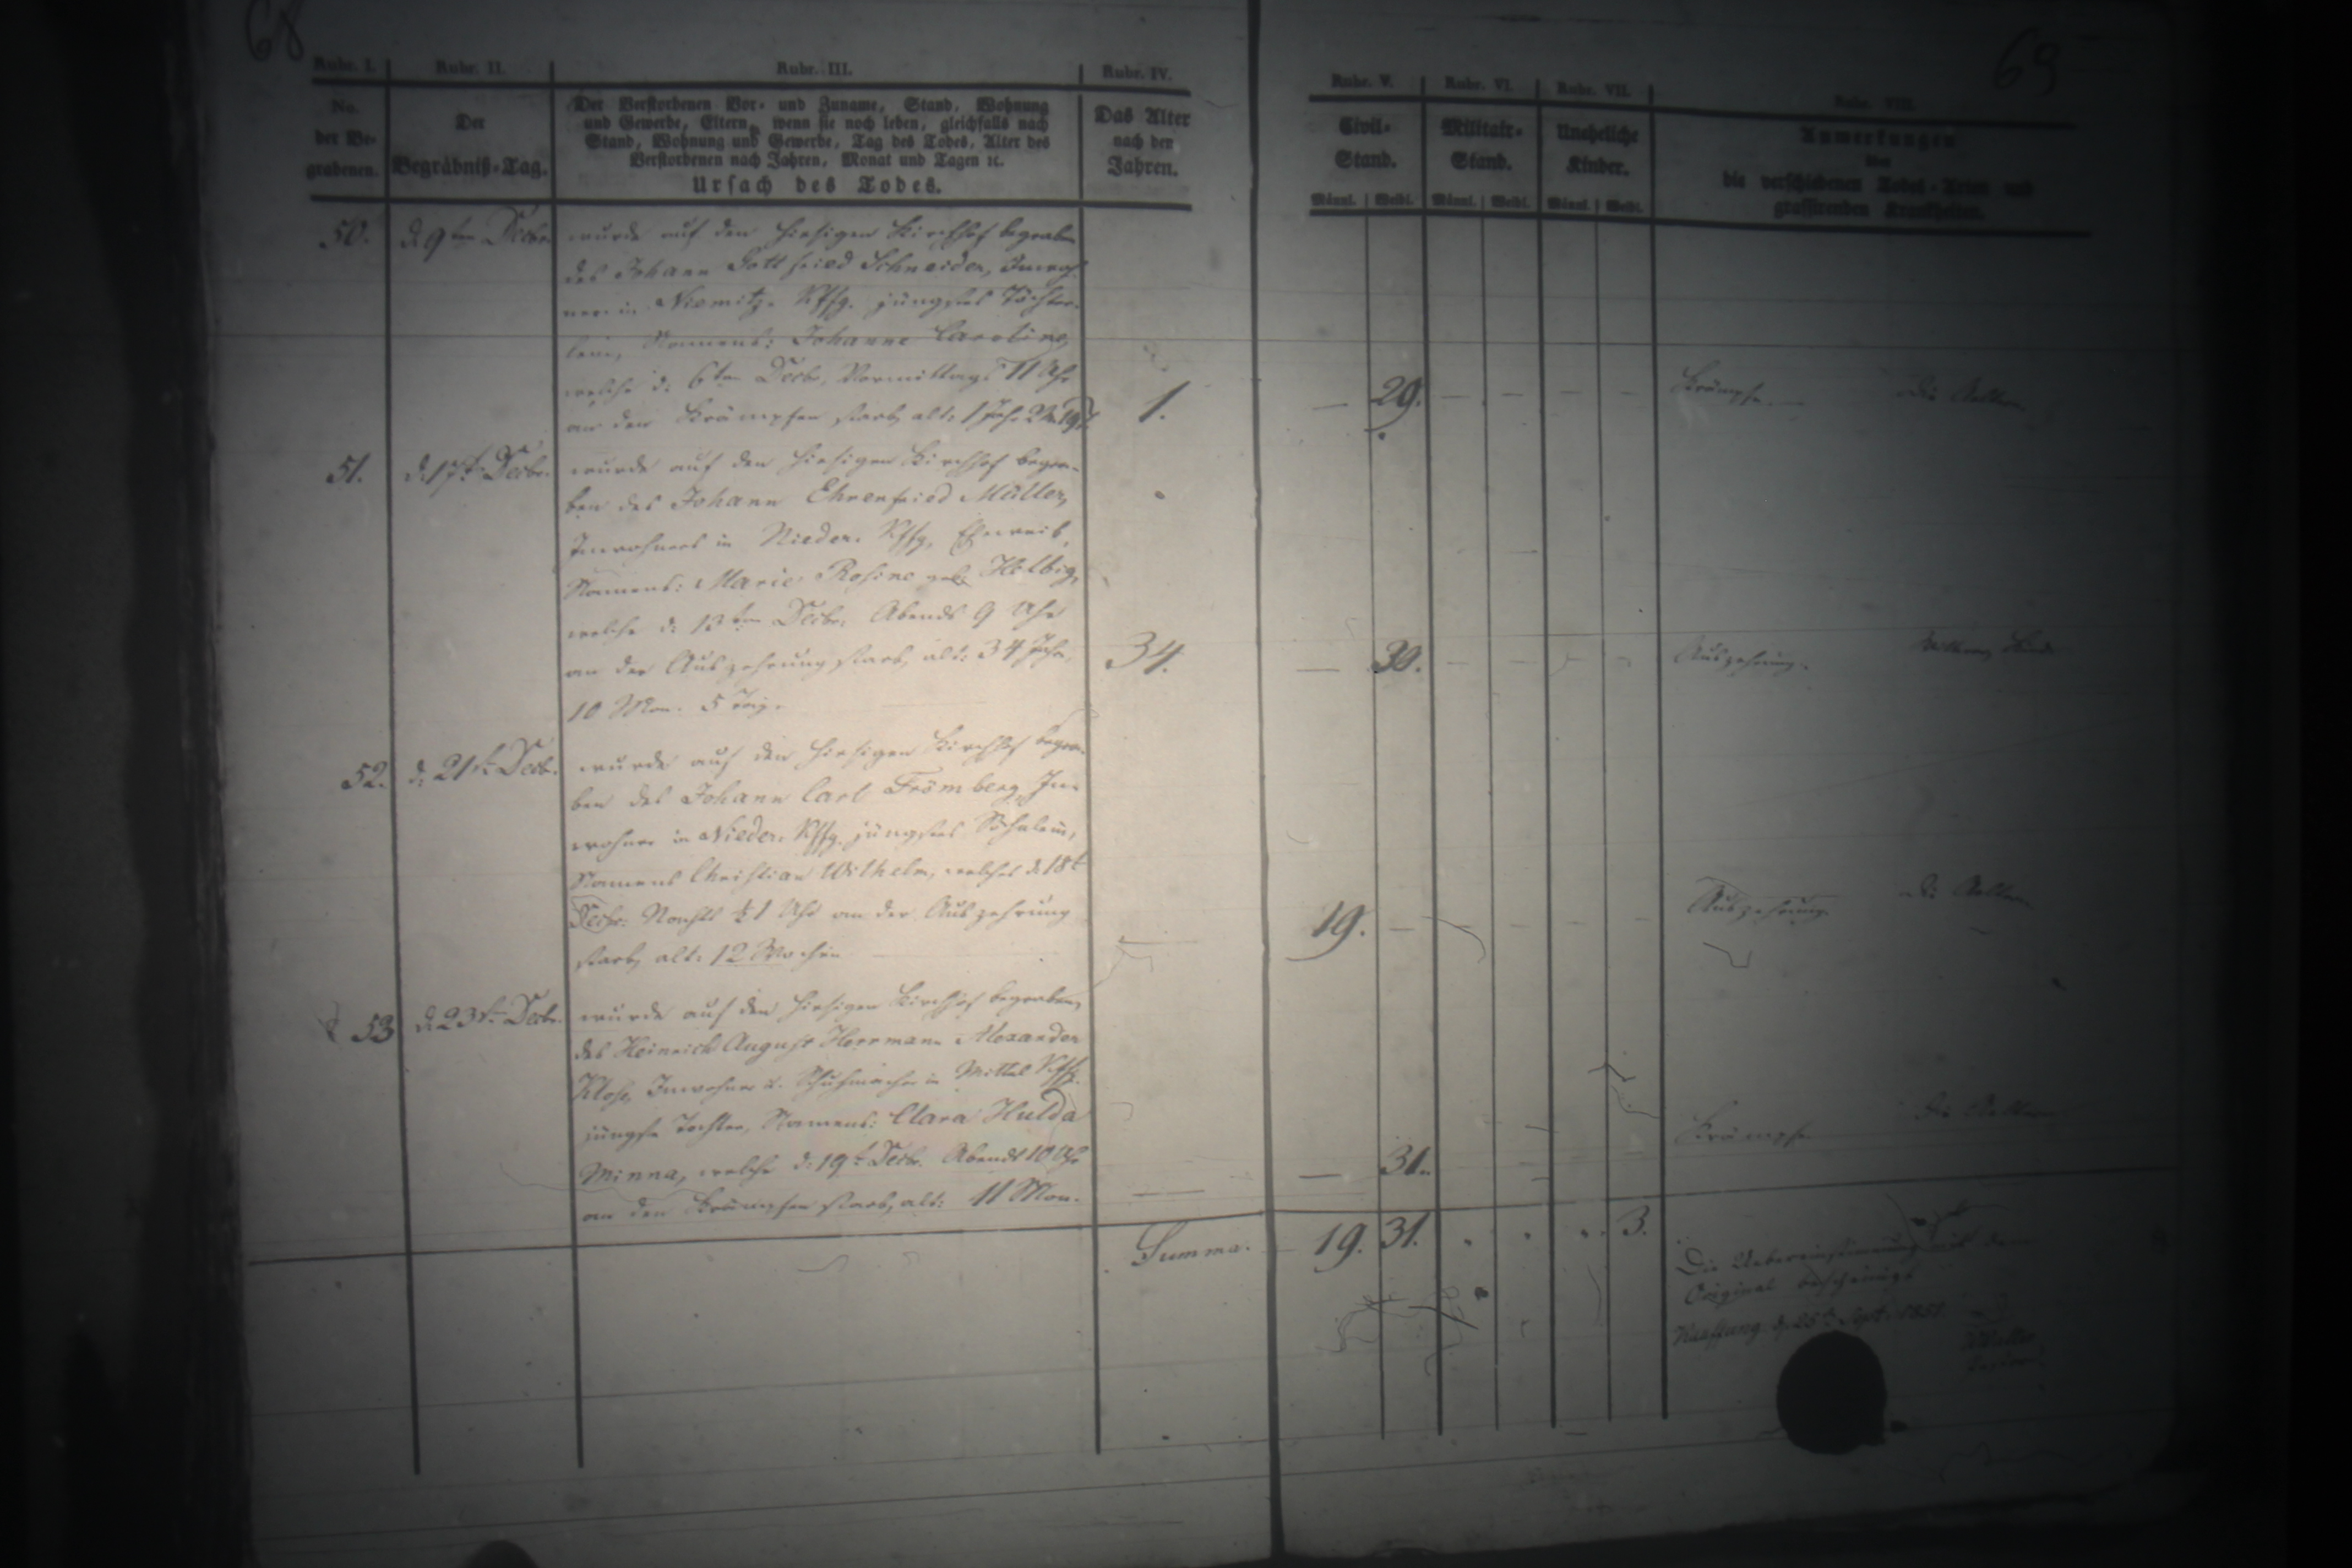 68
69
Rubr. I.
Rubr. II.
Rubr. III.
Rubr. IV.
Rubr. V.
Rubr. VI.
Rubr. VII.
Rubr. VIII.
No.
der Be-
grabenen.
Der
Begräbniß-Tag.
Der Verstorbenen Vor- und Zuname, Stand, Wohnung
und Gewerbe, Eltern, wenn sie noch leben, gleichfalls nach
Stand, Wohnung und Gewerbe, Tag des Todes, Alter des
Verstorbenen nach Jahren, Monat und Tagen ꝛc.
Ursach des Todes.
Das Alter
nach den
Jahren.
Civil-
Stand.
Männl. Weibl.
Militair-
Stand.
Männl. Weibl.
Uneheliche
Kinder.
Männl. Weibl.
Anmerkungen
über
die verschiedenen Todes-Arten und
grassirenden Krankheiten.
50. d. 9ten Decbr. wurde auf den hiesigen Kirchhof begraben
des Johann Gottfried Schneider, Inwoh-
ner in Niemitz Kffg. jüngstes Töchter-
lein, Namens: Johanne Caroline,
welche d. 6ten Decbr. Vormittags 11 Uhr
an den Krämpfen starb, alt: 1 Jahr 2 M. 19 T.
1. — 29. — — — — Krämpfe. — Die Aeltern
51. d. 17t. Decbr. wurde auf den hiesigen Kirchhof begra-
ben des Johann Ehrenfried Müller,
Inwohners in Nieder Kffg. Eheweib,
Namens: Marie Rosine geb. Helbig,
welche d. 13ten Decbr. Abends 9 Uhr
an der Auszehrung starb, alt: 34 Jahr,
10 Mon. 5 Tag.
34. — 30. — — — — Auszehrung.
52. d. 21st. Decb. wurde auf den hiesigen Kirchhof begra-
ben des Johann Carl Frömberg, In-
wohner in Nieder Kffg. jüngstes Söhnlein,
Namens Christian Wilhelm, welches d. 18t
Decbr. Nachts ½1 Uhr an der Auszehrung
starb, alt: 12 Wochen
— 19. — — — — — Auszehrung. Die Aeltern
53 d. 23st. Decbr. wurde auf den hiesigen Kirchhof begraben,
des Heinrich August Herrmann Alexander
Klose, Inwohner u. Schuhmacher in Mittel Kffg.
jüngste Tochter, Namens: Clara Hulda
Minna, welche d. 19t. Decbr. Abends 10 Uhr
an den Krämpfen starb, alt: 11 Mon.
— — 31. Krämpfe Die Aeltern
Summa. 19. 31. 3.
Die Uebereinstimmung mit dem
Original bescheinigt
Kauffung d. 25t. Sept. 1851.